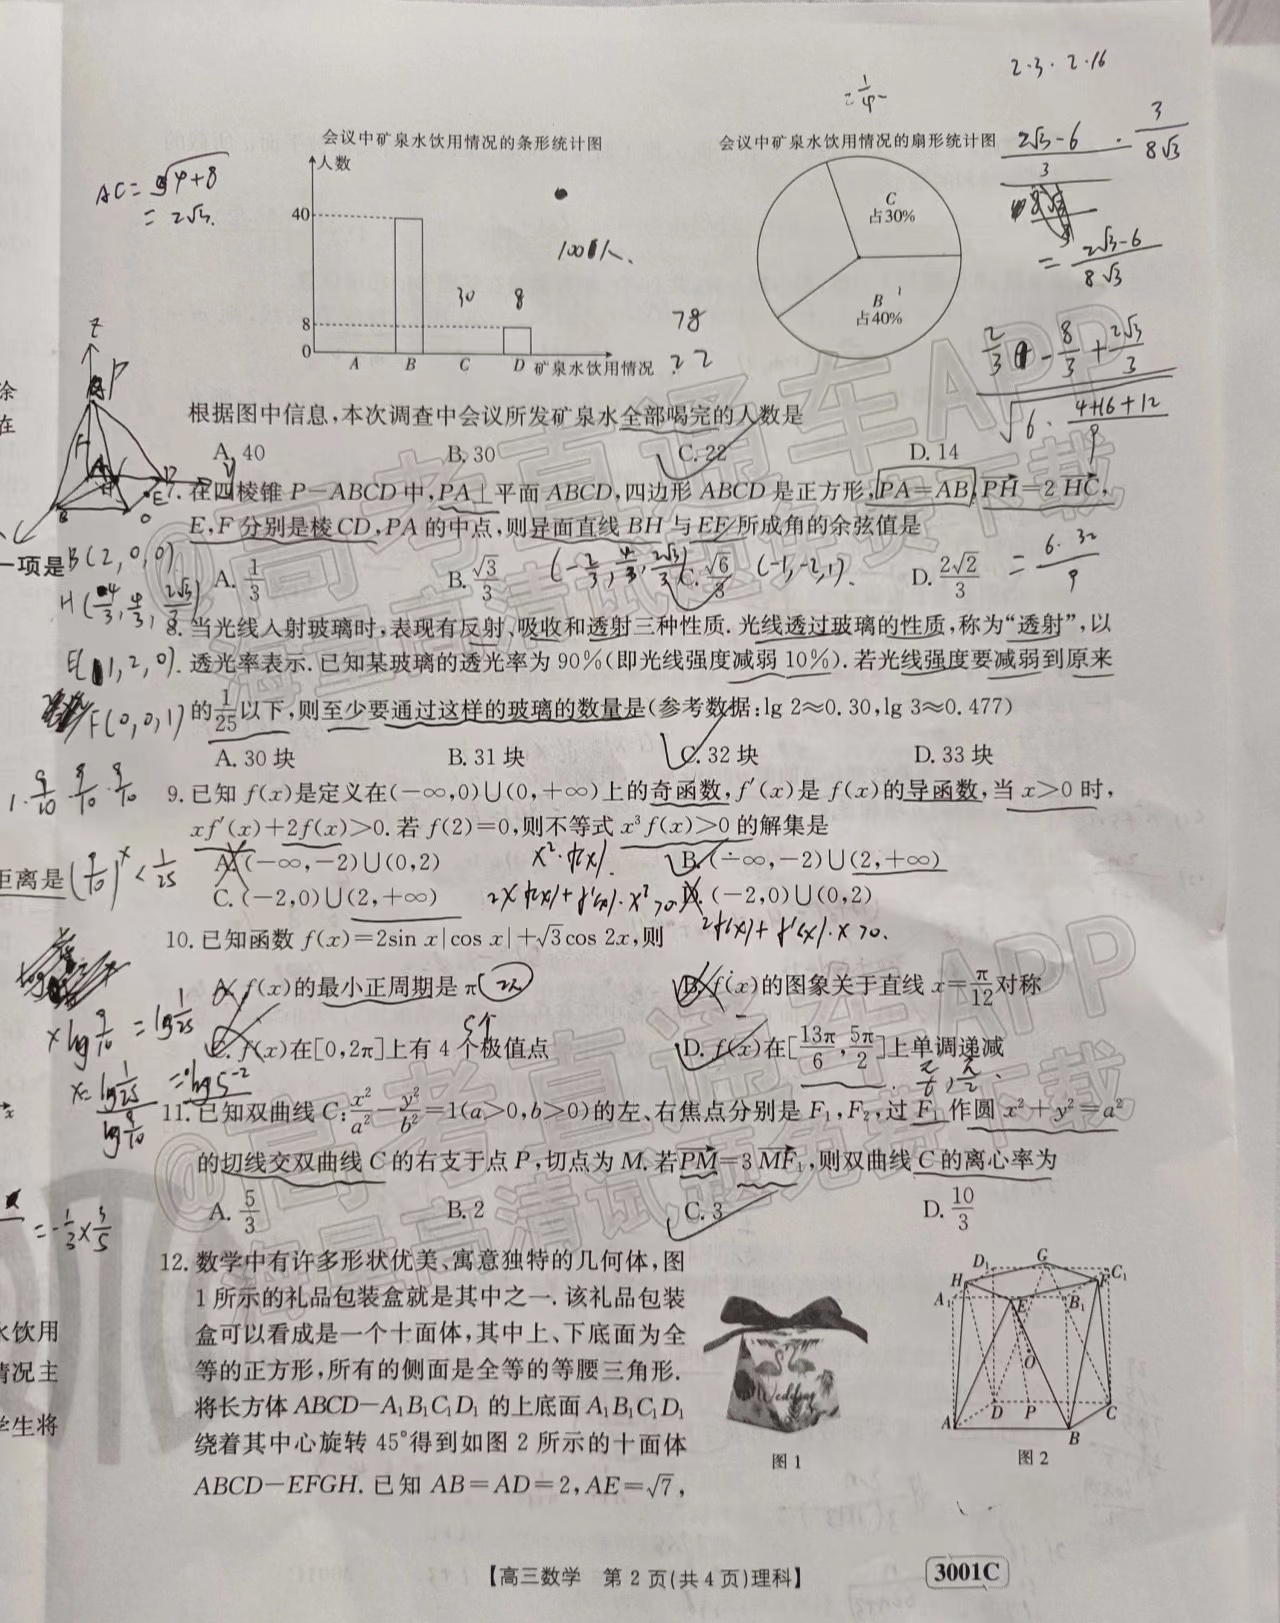 2·3·2·16
=1/4
会议中矿泉水饮用情况的条形统计图
会议中矿泉水饮用情况的扇形统计图
人数
40
8
0
A B C D 矿泉水饮用情况
30
8
100人.
78
22
C
占30%
B
占40%
AC=√4+8
=2√3.
2√3-6/3 · 3/8√3
=2√3-6/8√3
根据图中信息,本次调查中会议所发矿泉水全部喝完的人数是
A. 40 B. 30 C. 22 D. 14
7. 在四棱锥 P-ABCD 中,PA⊥平面 ABCD,四边形 ABCD 是正方形,PA=AB,PH=2HC,
E,F 分别是棱 CD,PA 的中点,则异面直线 BH 与 EF 所成角的余弦值是
A. 1/3 B. √3/3 C. √6/3 D. 2√2/3
B(2,0,0)
E(1,2,0).
F(0,0,1)
(-1,-2,1).
8. 当光线入射玻璃时,表现有反射、吸收和透射三种性质. 光线透过玻璃的性质,称为“透射”,以
透光率表示. 已知某玻璃的透光率为 90%(即光线强度减弱 10%). 若光线强度要减弱到原来
的1/25以下,则至少要通过这样的玻璃的数量是(参考数据:lg 2≈0.30,lg 3≈0.477)
A. 30 块 B. 31 块 C. 32 块 D. 33 块
1·9/10·9/10·9/10
(9/10)^x<1/25
9. 已知 f(x)是定义在(-∞,0)∪(0,+∞)上的奇函数,f′(x)是 f(x)的导函数,当 x>0 时,
xf′(x)+2f(x)>0. 若 f(2)=0,则不等式 x³f(x)>0 的解集是
A. (-∞,-2)∪(0,2) B. (-∞,-2)∪(2,+∞)
C. (-2,0)∪(2,+∞) D. (-2,0)∪(0,2)
x²·f(x)
2x f(x)+f′(x)·x²>0
2f(x)+f′(x)·x>0.
10. 已知函数 f(x)=2sin x|cos x|+√3cos 2x,则
A. f(x)的最小正周期是 π B. f(x)的图象关于直线 x=π/12对称
C. f(x)在[0,2π]上有 4 个极值点 D. f(x)在[13π/6,5π/2]上单调递减
2π
5个
x lg9/10=lg1/25
11. 已知双曲线 C:x²/a²-y²/b²=1(a>0,b>0)的左、右焦点分别是 F₁,F₂,过 F₁ 作圆 x²+y²=a²
的切线交双曲线 C 的右支于点 P,切点为 M. 若PM=3MF₁,则双曲线 C 的离心率为
A. 5/3 B. 2 C. 3 D. 10/3
=-1/3×3/5
12. 数学中有许多形状优美、寓意独特的几何体,图
1 所示的礼品包装盒就是其中之一. 该礼品包装
盒可以看成是一个十面体,其中上、下底面为全
等的正方形,所有的侧面是全等的等腰三角形.
将长方体 ABCD-A₁B₁C₁D₁ 的上底面 A₁B₁C₁D₁
绕着其中心旋转 45°得到如图 2 所示的十面体
ABCD-EFGH. 已知 AB=AD=2,AE=√7,
Wedding
图 1
D₁ G C₁
H F
A₁ E B₁
O
A D P B C
图 2
涂
在
一项是
距离是
水饮用
情况主
学生将
【高三数学 第 2 页(共 4 页)理科】
3001C
@高考直通车APP
海量高清试题免费下载
@高考直通车APP
海量高清试题免费下载